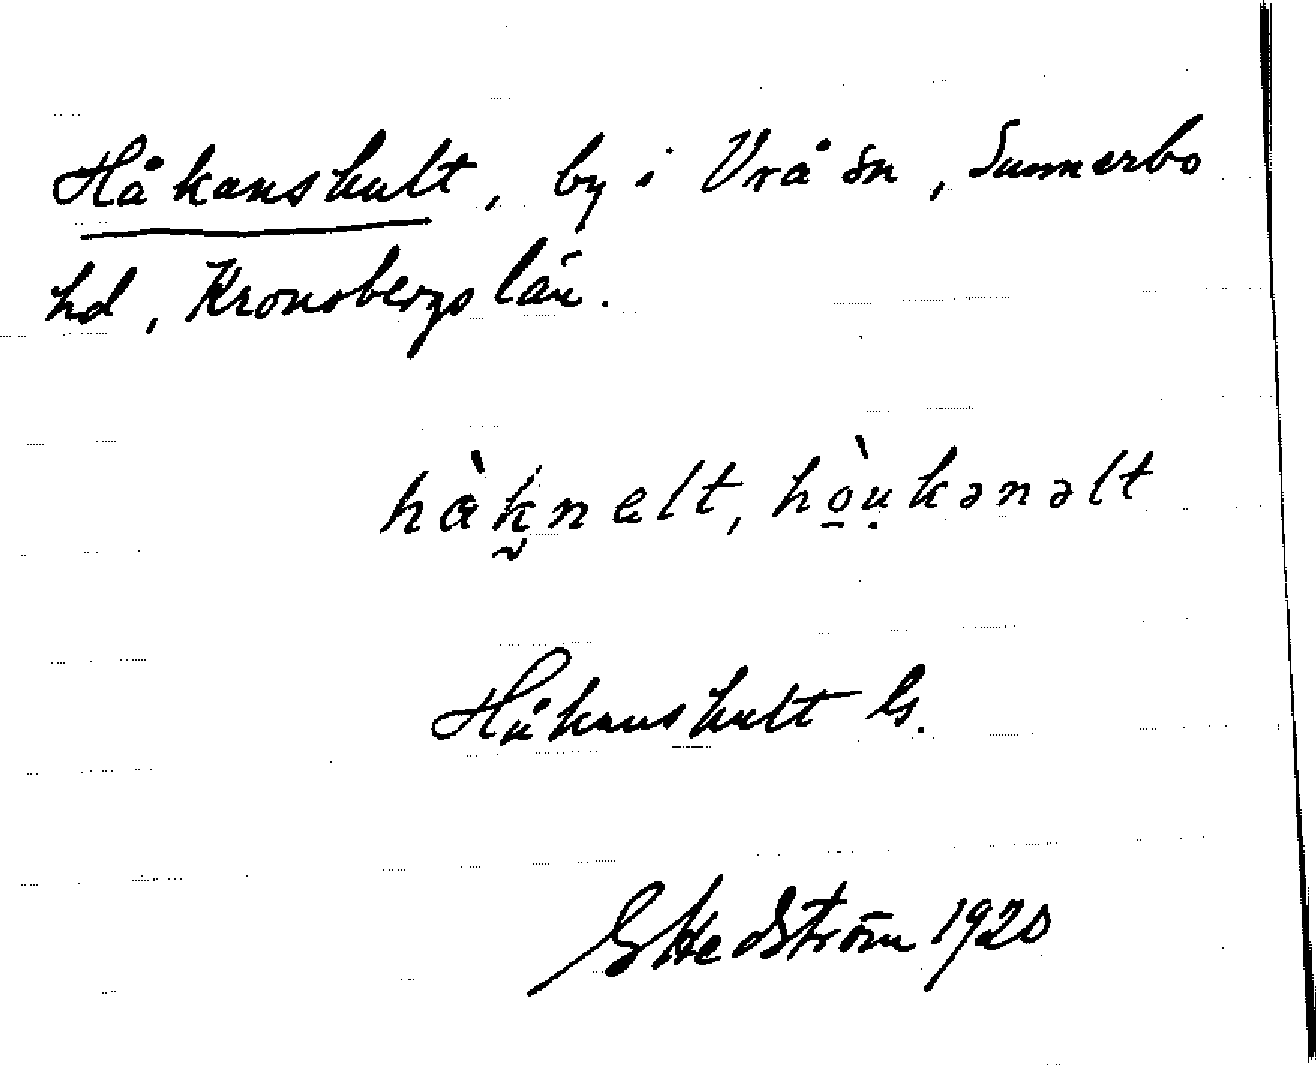 Håkanshult, by i Vrå sn, Sunnerbo
hd, Kronobergs län.
hàk̬nelt, hò̱ụkənəlt
Håkanshult G.
G Hedström 1920